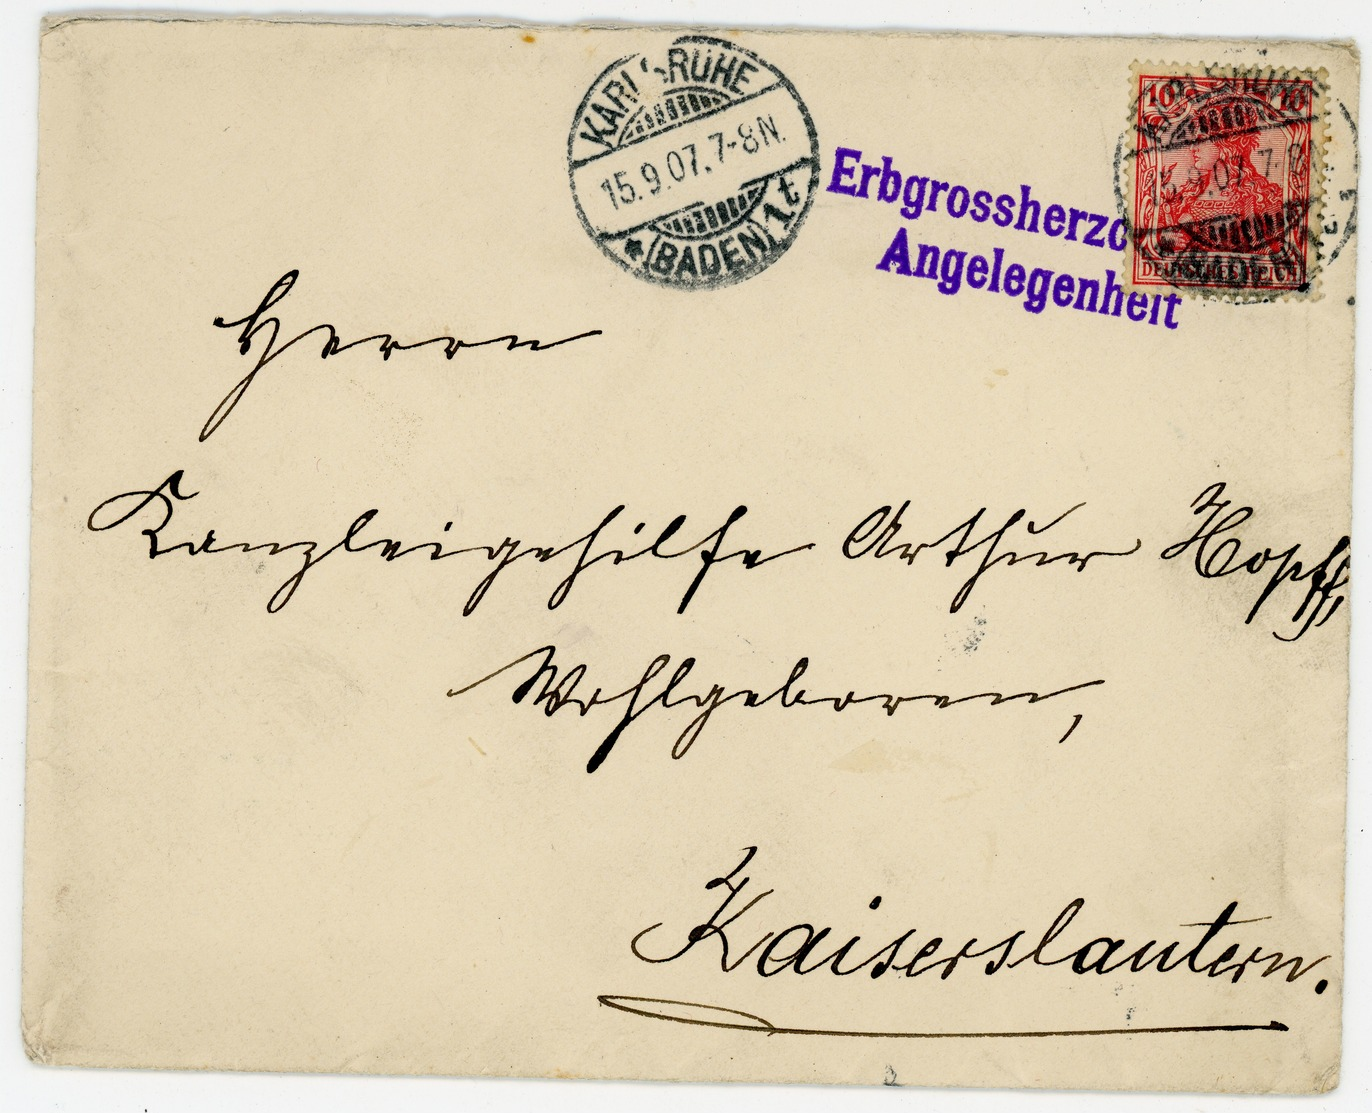 KARLSRUHE
15.9.07. 7-8N.
* (BADEN) 1t
Erbgrossherzo
Angelegenheit
10 10
DEUTSCHES REICH
KARLSRUHE
15.9.07. 7-8
(BADEN)
Herrn
Kanzleigehilfe Arthur Hopff,
Wohlgeboren,
Kaiserslautern.